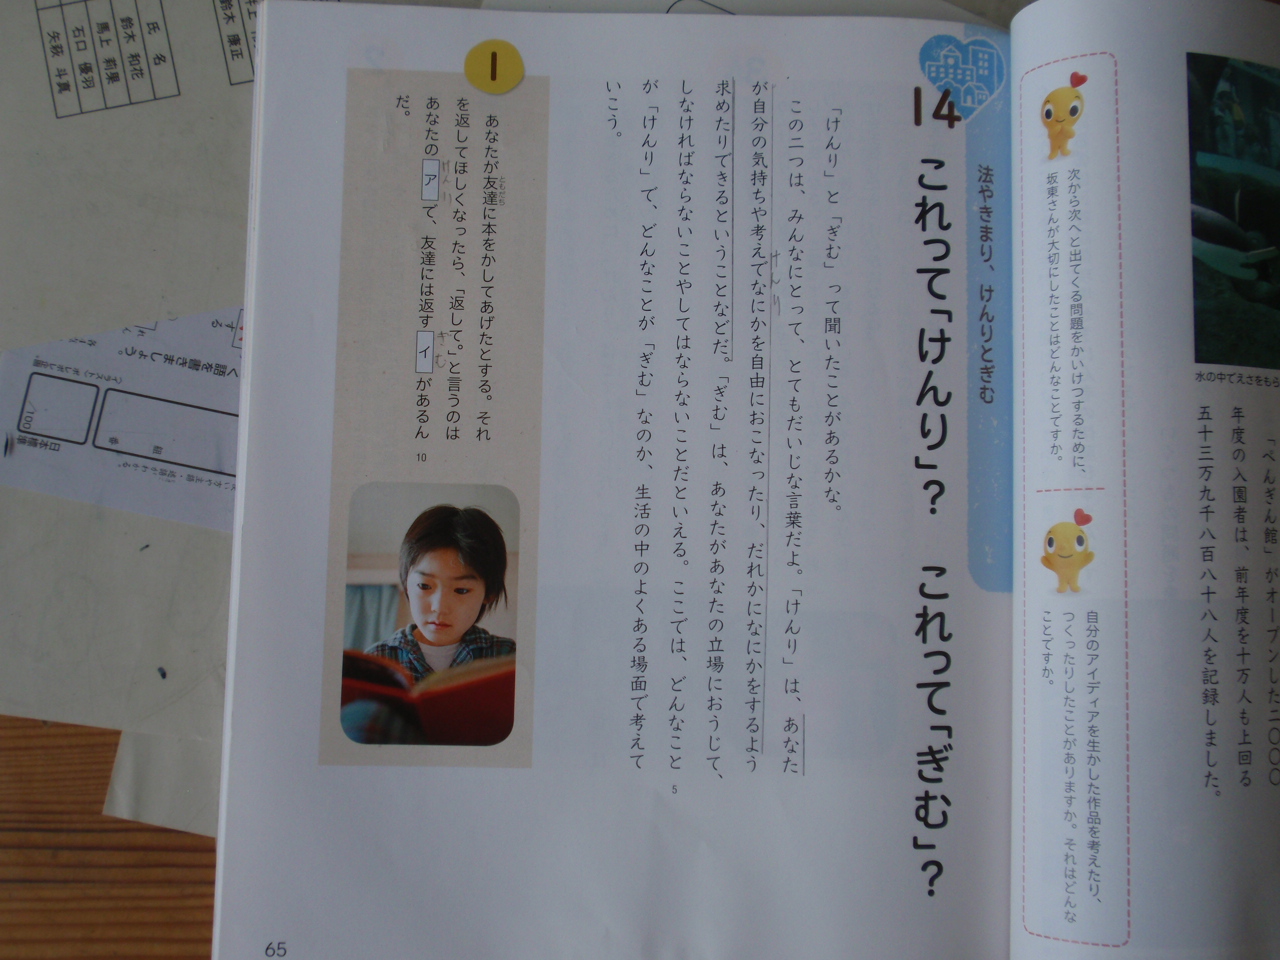 水の中でえさをもら
「ぺんぎん館」がオープンした二〇〇〇
年度の入園者は、前年度を十万人も上回る
五十三万九千八百八十八人を記録しました。
次から次へと出てくる問題をかいけつするために、
坂東さんが大切にしたことはどんなことですか。
自分のアイディアを生かした作品を考えたり、
つくったりしたことがありますか。それはどんな
ことですか。
法やきまり、けんりとぎむ
14 これって「けんり」? これって「ぎむ」?
「けんり」と「ぎむ」って聞いたことがあるかな。
この二つは、みんなにとって、とてもだいじな言葉だよ。「けんり」は、あなた
けんり
が自分の気持ちや考えでなにかを自由におこなったり、だれかになにかをするよう
求めたりできるということなどだ。「ぎむ」は、あなたがあなたの立場におうじて、
しなければならないことやしてはならないことだといえる。ここでは、どんなこと
5
が「けんり」で、どんなことが「ぎむ」なのか、生活の中のよくある場面で考えて
いこう。
1
あなたが友達に本をかしてあげたとする。それ
ともだち
を返してほしくなったら、「返して。」と言うのは
けんり
ぎむ
あなたの ア で、友達には返す イ があるん
10
だ。
65
氏 名
鈴木 和花
馬上 莉果
石口 優羽
矢萩 斗真
鈴木 康正
する
く語を書きましょう。
/100
日本標準
組
番